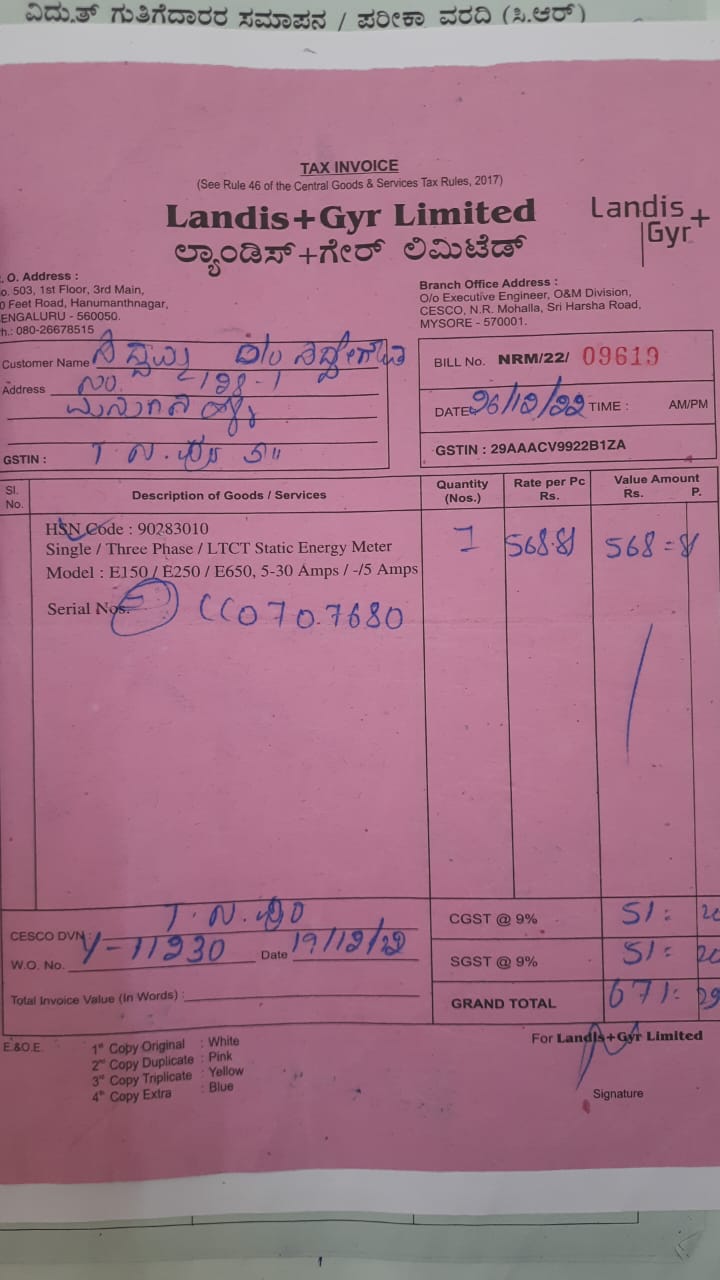 ವಿದ್ಯುತ್ ಗುತ್ತಿಗೆದಾರರ ಸಮಾಪನ / ಪರೀಕ್ಷಾ ವರದಿ (ಸಿ.ಆರ್)
TAX INVOICE
(See Rule 46 of the Central Goods & Services Tax Rules, 2017)
Landis+Gyr Limited
ಲ್ಯಾಂಡಿಸ್+ಗೇರ್ ಲಿಮಿಟೆಡ್
Landis
Gyr+
. O. Address :
o. 503, 1st Floor, 3rd Main,
0 Feet Road, Hanumanthnagar,
ENGALURU - 560050.
h.: 080-26678515
Branch Office Address :
O/o Executive Engineer, O&M Division,
CESCO, N.R. Mohalla, Sri Harsha Road,
MYSORE - 570001.
Customer Name
Address
GSTIN :
BILL No. NRM/22/ 09619
DATE 26/12/22 TIME : AM/PM
GSTIN : 29AAACV9922B1ZA
Sl. No. Description of Goods / Services Quantity (Nos.) Rate per Pc Rs. Value Amount Rs. P.
HSN Code : 90283010
Single / Three Phase / LTCT Static Energy Meter 1 568.81 568=81
Model : E150 / E250 / E650, 5-30 Amps / -/5 Amps
Serial Nos. CC070.7680
CESCO DVN :
W.O. No. Y-11930 Date 19/12/22
Total Invoice Value (In Words) :
CGST @ 9% 51:
SGST @ 9% 51:
GRAND TOTAL 671: 29
E.&O.E.
1st Copy Original : White
2nd Copy Duplicate : Pink
3rd Copy Triplicate : Yellow
4th Copy Extra : Blue
For Landis+Gyr Limited
Signature